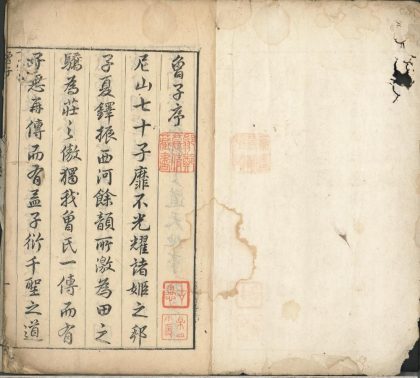 曾子序
尼山七十子靡不光耀諸姬之邦
子夏鐸振西河餘韻所激為田之
驕為莊之傲獨我曾氏一傳而有
子思再傳而有孟子衍千聖之道